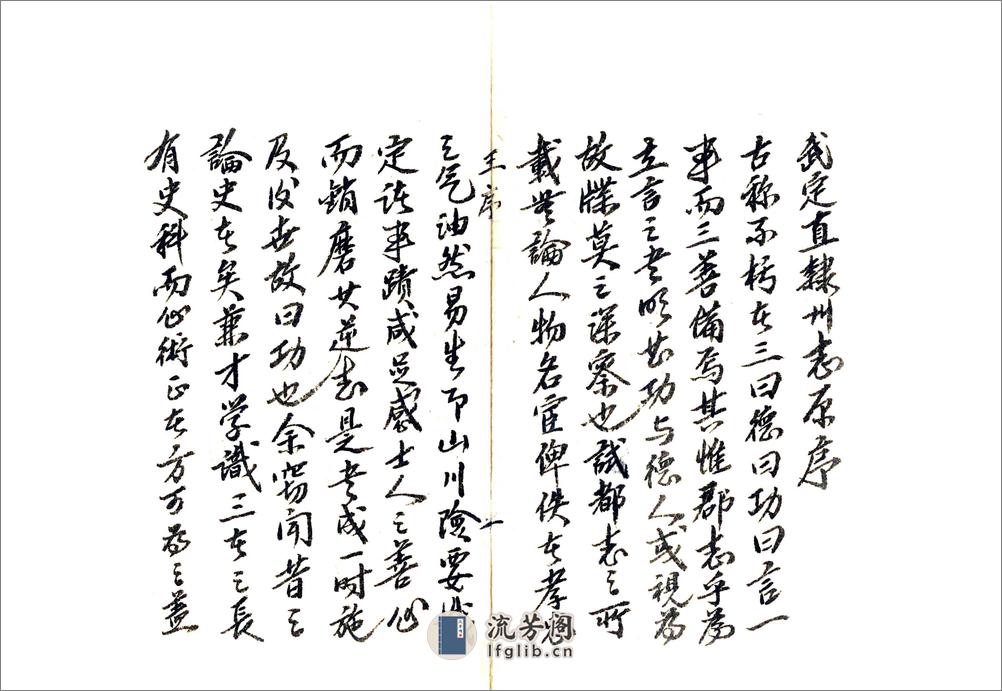 武定直隸州志原序
古称不朽者三曰德曰功曰言一
事而三善備焉其惟郡志乎為
立言之書明其功与德人或視為
故牒莫之深察也試都志之所
載無論人物名宦俾佚者孝
王序
一
之气油然易生即山川險要
定諸事蹟咸足感士人之善心
而銷磨其逆志是書成一时施
及後世故曰功也余窃闻昔之
論史者矣兼才学識三者之長
有史科而心術正者方可為之蓋
流芳阁
lfglib.cn